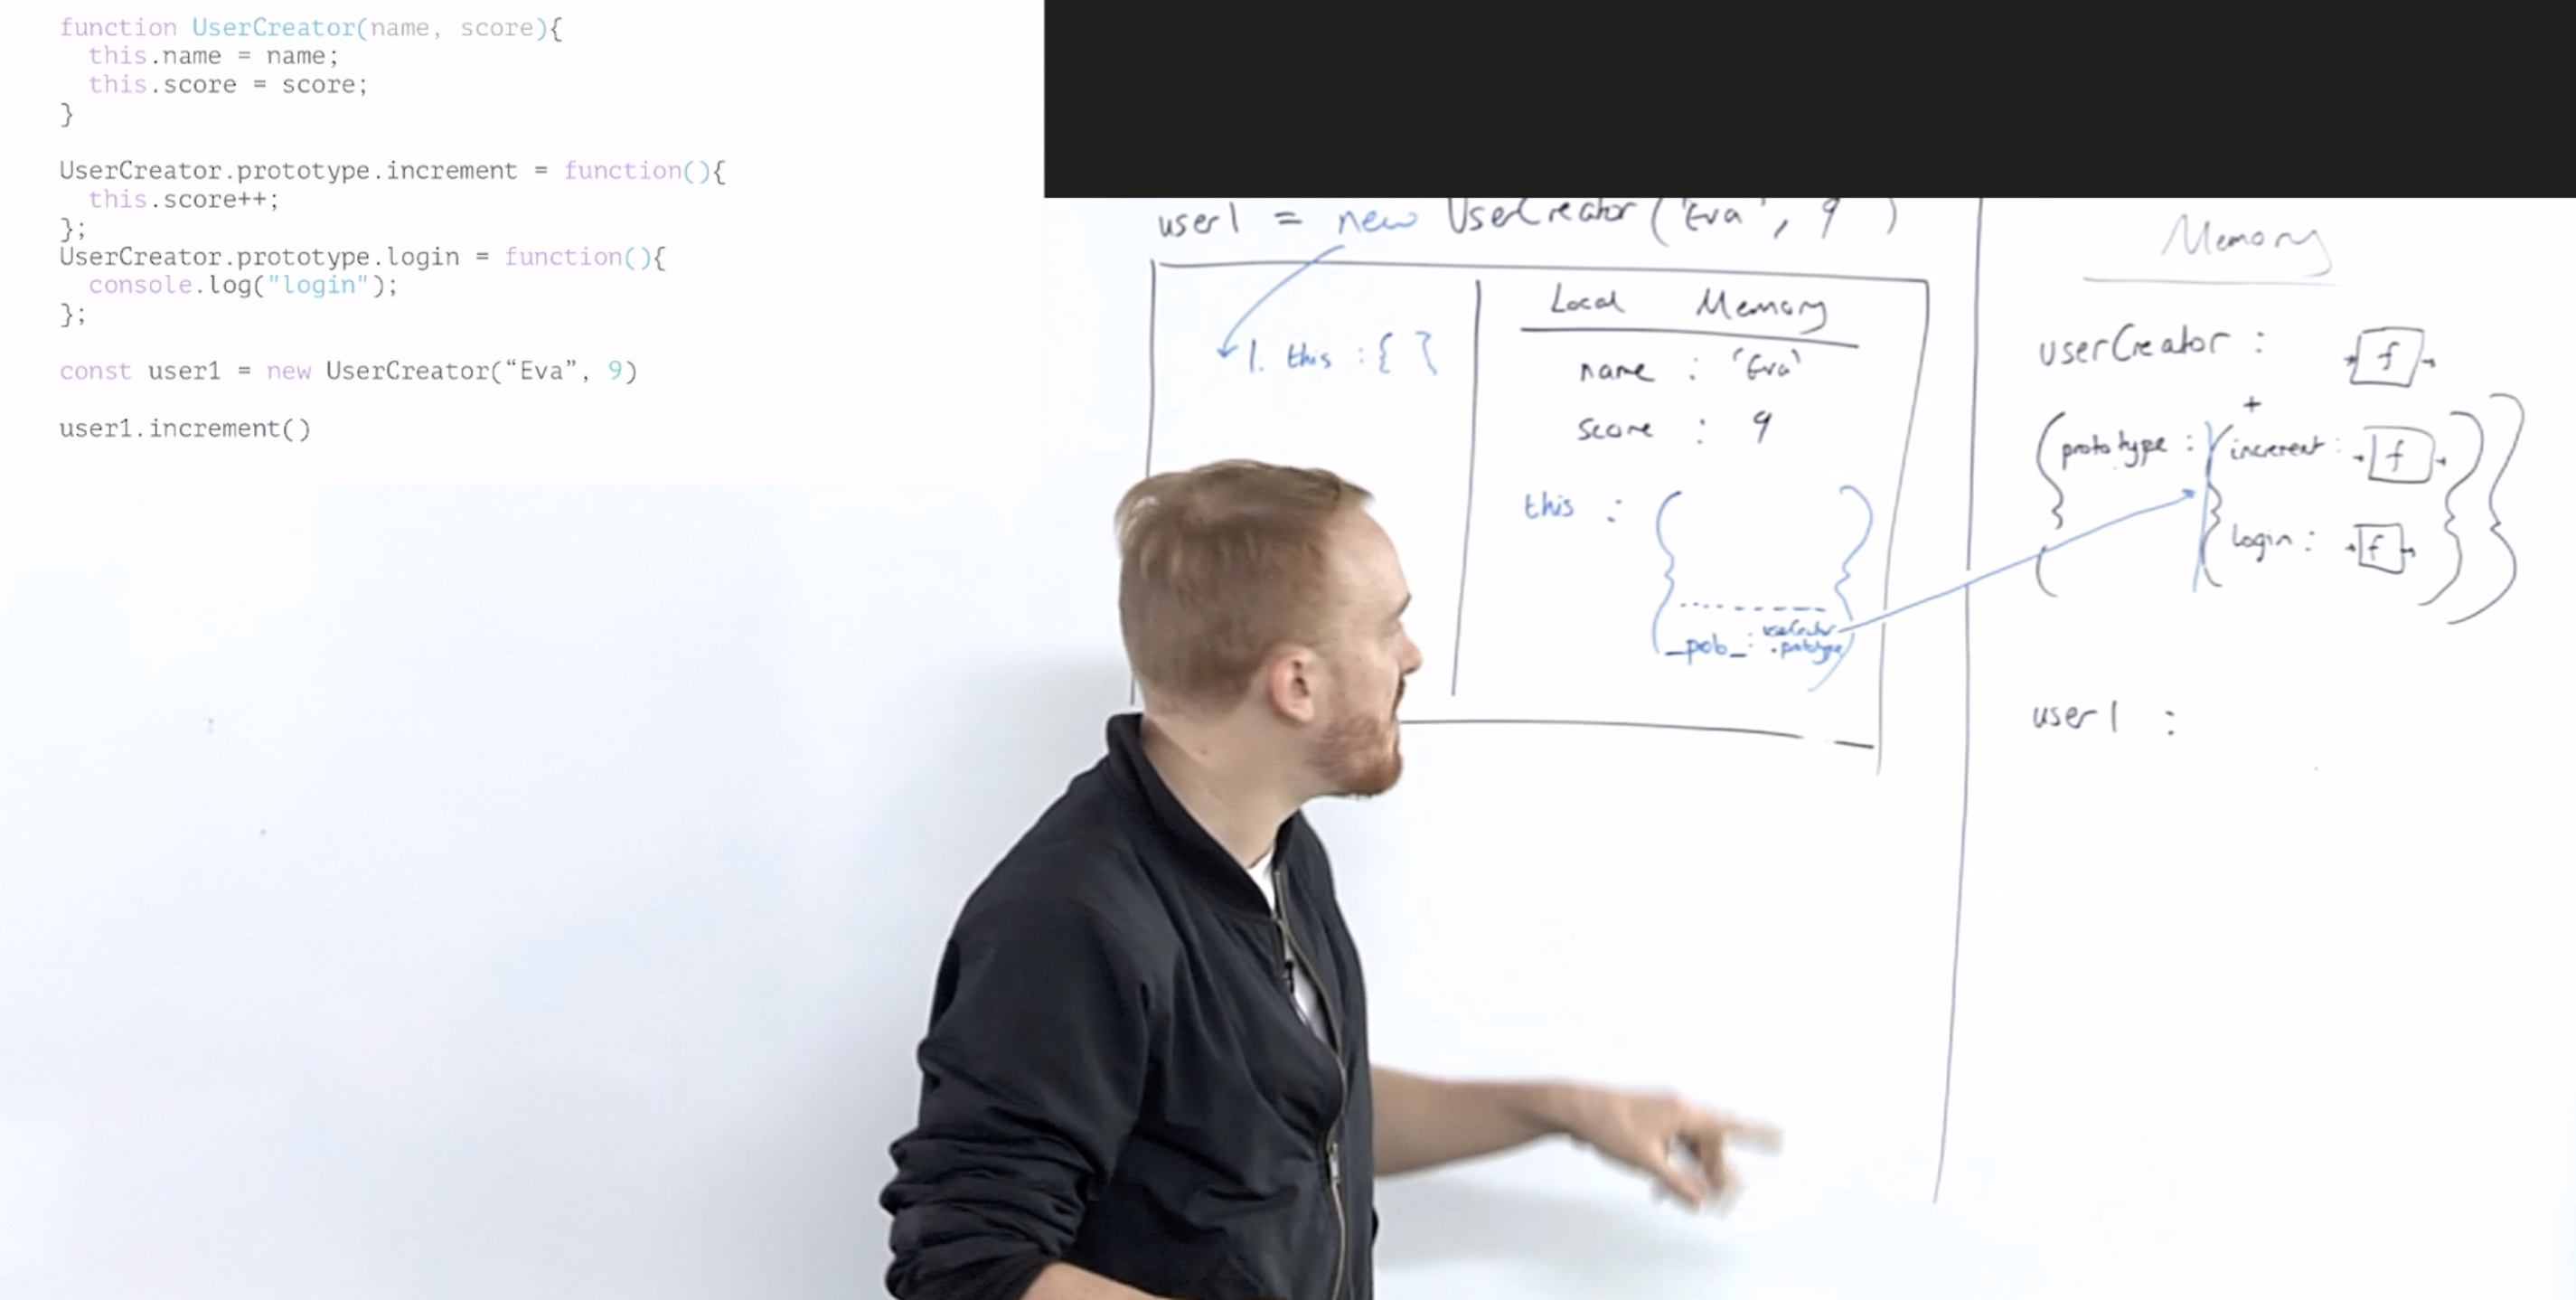 function UserCreator(name, score){
this.name = name;
this.score = score;
}
UserCreator.prototype.increment = function(){
this.score++;
};
UserCreator.prototype.login = function(){
console.log("login");
};
const user1 = new UserCreator(“Eva”, 9)
user1.increment()
user1 = new UserCreator ('Eva', 9 )
1. this : { }
Local Memory
name : 'Eva'
score : 9
this : {
}
userCreator
.prototype
Memory
userCreator : f
+
{ prototype : { increment : f } }
login : f
user1 :